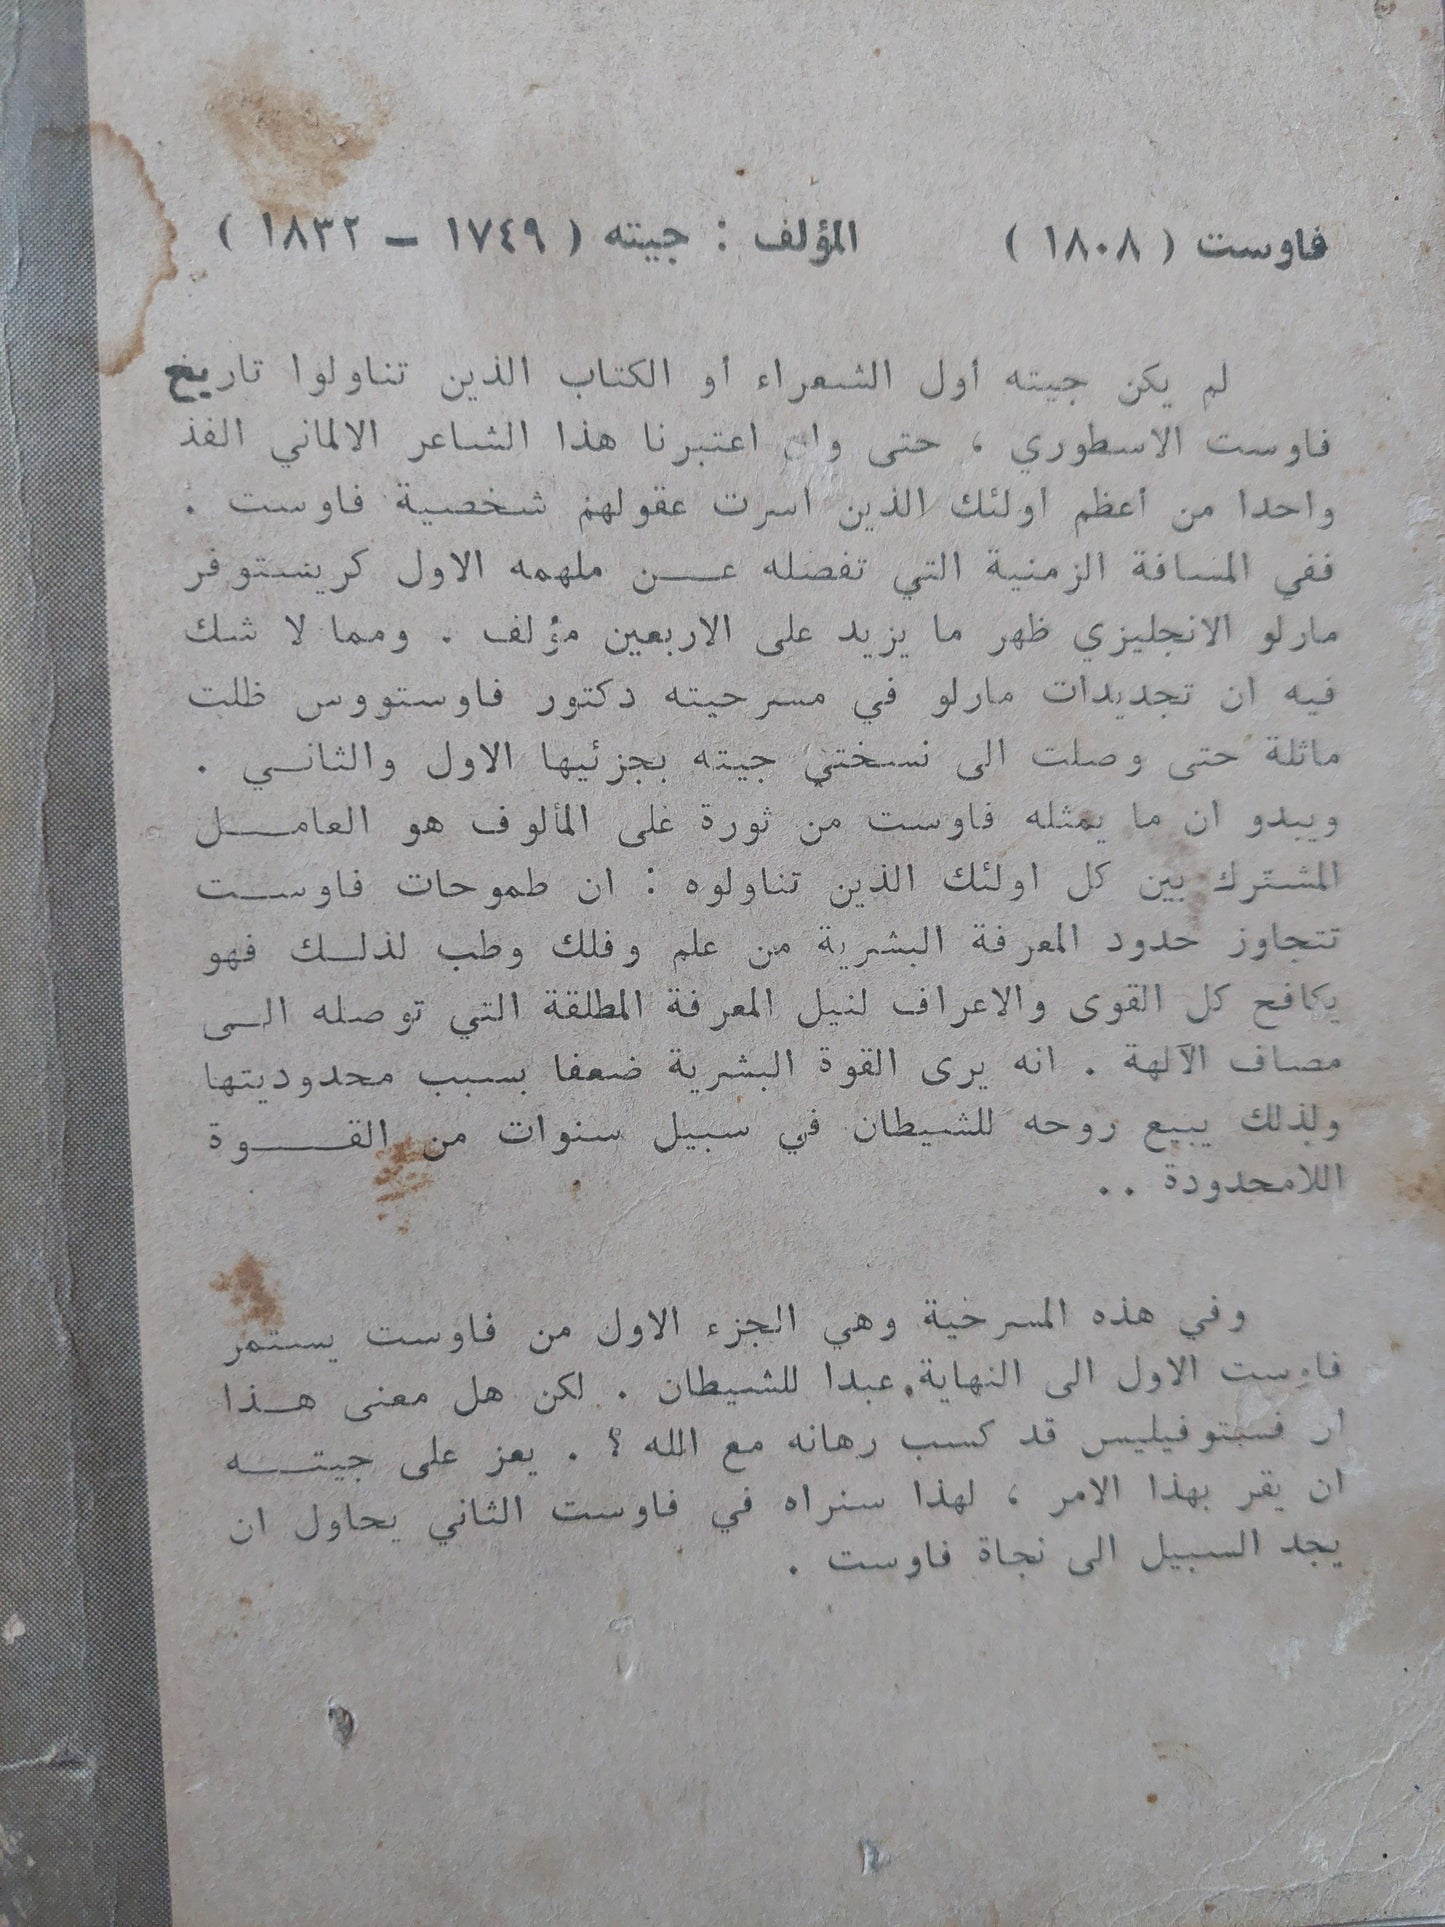 فاوست ( ١٨٠٨ ) المؤلف : جيته ( ١٧٤٩ – ١٨٣٢ )
لم يكن جيته أول الشعراء أو الكتاب الذين تناولوا تاريخ
فاوست الاسطوري ، حتى وان اعتبرنا هذا الشاعر الالماني الفذ
واحدا من أعظم اولئك الذين اسرت عقولهم شخصية فاوست .
ففي المسافة الزمنية التي تفصله عن ملهمه الاول كريستوفر
مارلو الانجليزي ظهر ما يزيد على الاربعين مؤلف . ومما لا شك
فيه ان تجديدات مارلو في مسرحيته دكتور فاوستووس ظلت
ماثلة حتى وصلت الى نسختي جيته بجزئيها الاول والثاني .
ويبدو ان ما يمثله فاوست من ثورة على المألوف هو العامل
المشترك بين كل اولئك الذين تناولوه : ان طموحات فاوست
تتجاوز حدود المعرفة البشرية من علم وفلك وطب لذلك فهو
يكافح كل القوى والاعراف لنيل المعرفة المطلقة التي توصله الى
مصاف الآلهة . انه يرى القوة البشرية ضعفا بسبب محدوديتها
ولذلك يبيع روحه للشيطان في سبيل سنوات من القوة
اللامحدودة ..
وفي هذه المسرحية وهي الجزء الاول من فاوست يستمر
فاوست الاول الى النهاية عبدا للشيطان . لكن هل معنى هذا
ان فستوفيليس قد كسب رهانه مع الله ؟ . يعز على جيته
ان يقر بهذا الامر ، لهذا سنراه في فاوست الثاني يحاول ان
يجد السبيل الى نجاة فاوست .